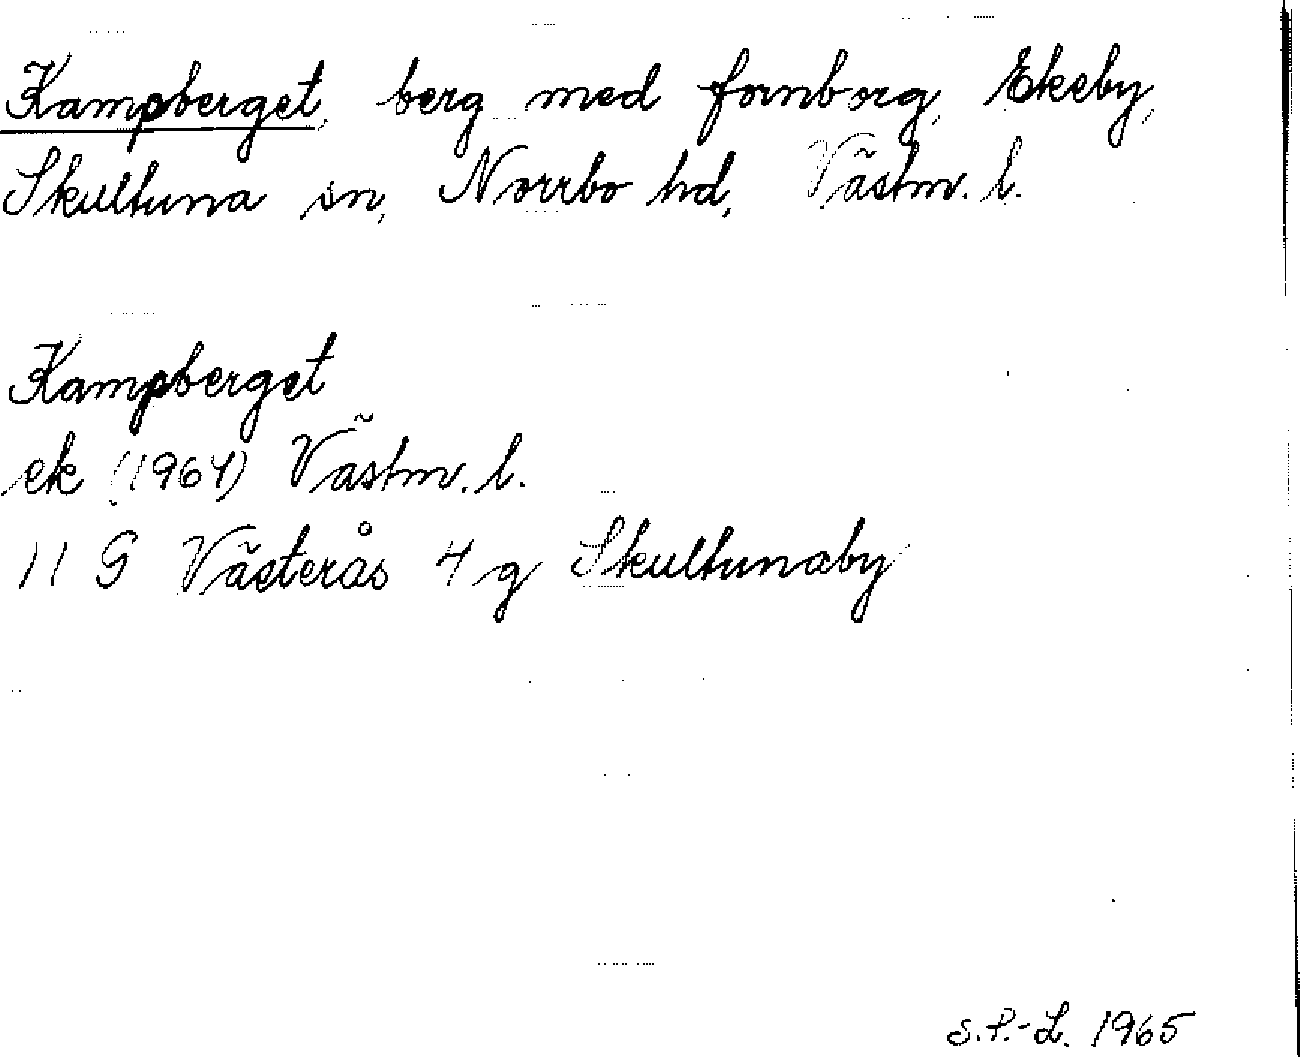 Kampberget, berg med fornborg, Ekeby,
Skultuna sn, Norrbo hd, Västm. l.
Kampberget
ek (1964) Västm. l.
11 G Västerås 4 g Skultunaby
S.P.-L. 1965